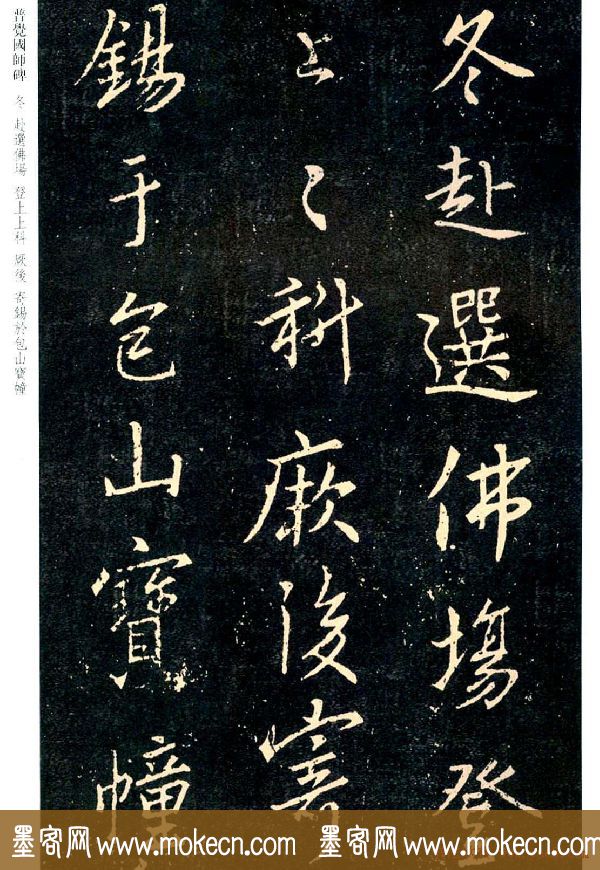 冬赴選佛場登
上〻科厥後寄
錫于包山寶幢
普覺國師碑 冬 赴選佛場 登上上科 厥後 寄錫於包山寶幢
墨客网 www.mokecn.com 墨客网 www.mokecn.com